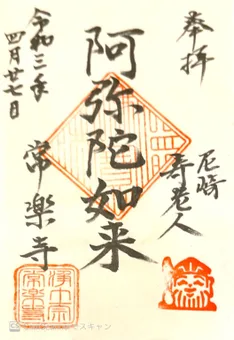 奉拝
尼崎
寿老人
阿弥陀如来
常楽寺
令和三年
四月廿七日
浄土宗
常楽寺
スキャン